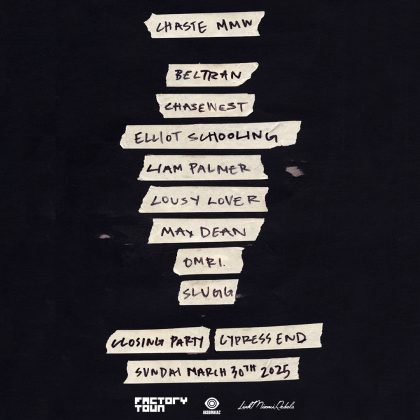 CHASTE MMW
BELTRAN
CHASEWEST
ELLIOT SCHOOLING
LIAM PALMER
LOUSY LOVER
MAX DEAN
OMRI.
SLUGG
CLOSING PARTY CYPRESS END
SUNDAY MARCH 30TH 2025
FACTORY TOWN INSOMNIAC Link Miami Rebels